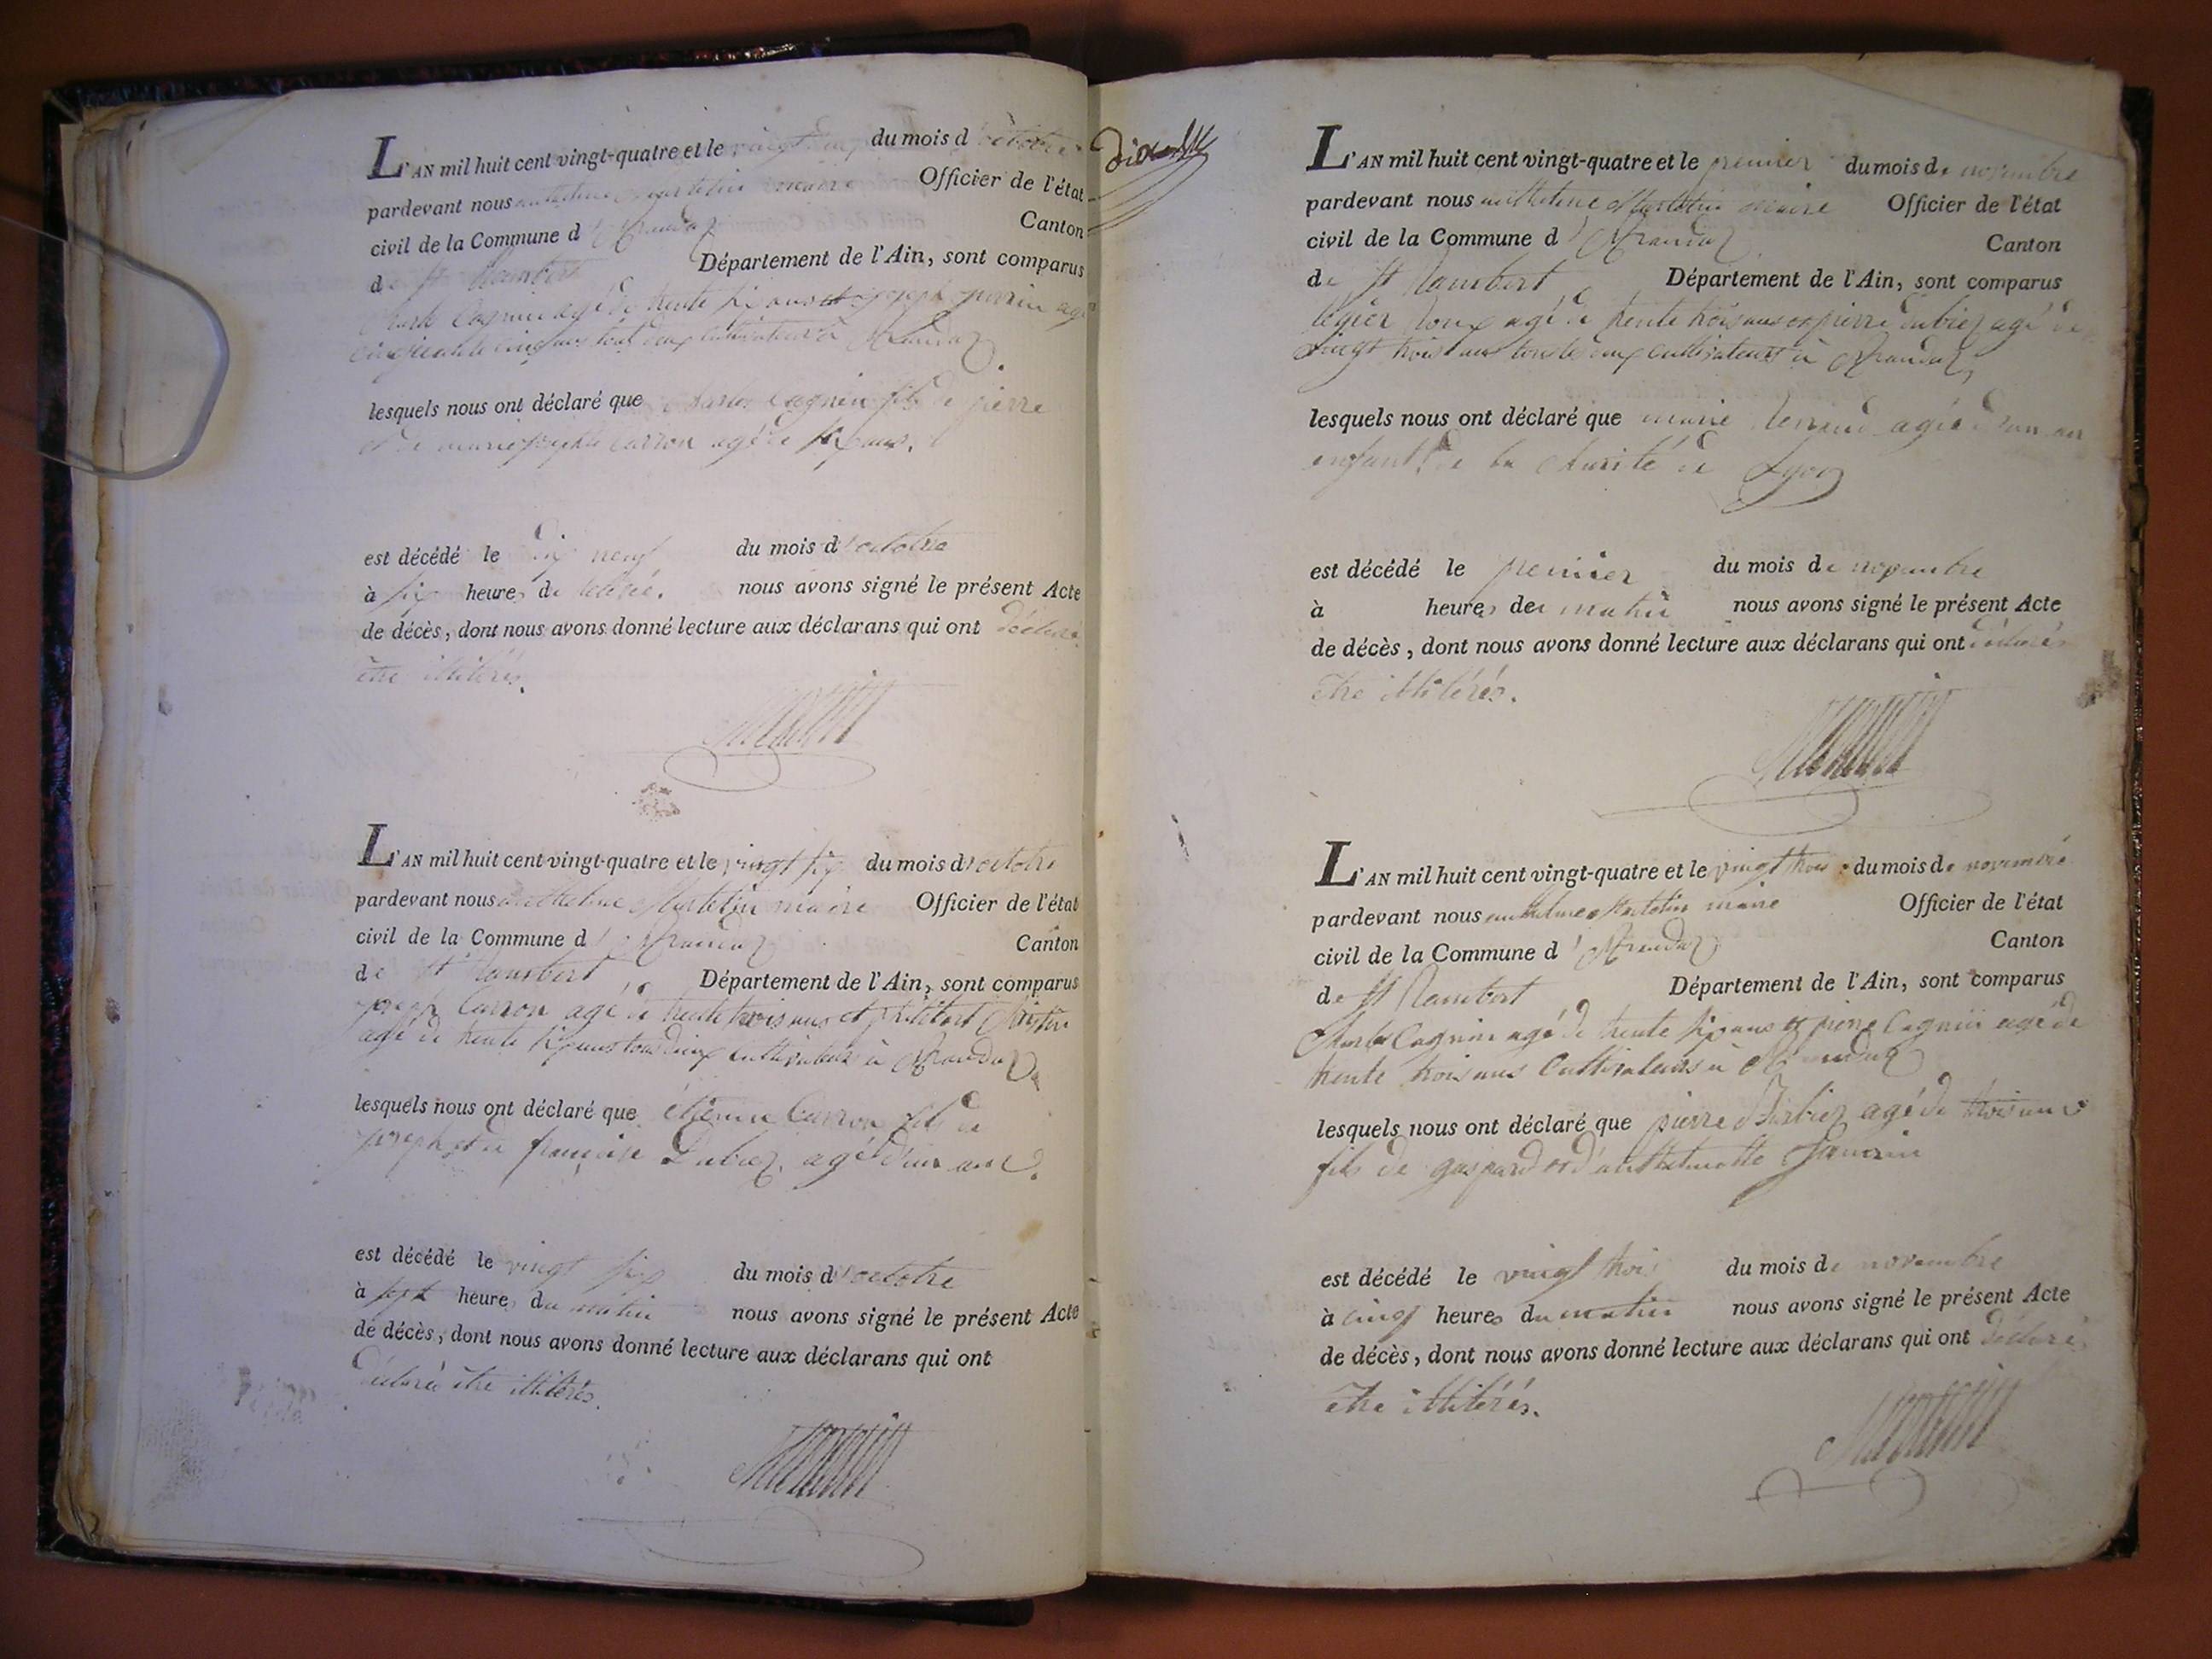 L'AN mil huit cent vingt-quatre et le vingt du mois d'octobre
pardevant nous anthelme Martelin maire Officier de l'état
civil de la Commune d'Arandaz Canton
de St Rambert Département de l'Ain, sont comparus
Charle Cagnin agé de trente six ans et joseph perrin agé
cinquante cinq ans tout deux cultivateurs à Arandaz
lesquels nous ont déclaré que Charles Cagnin fils de pierre
et de marie josephte Carron agé de six ans.
est décédé le dix neuf du mois d'octobre
à six heures de nous avons signé le présent Acte
de décès, dont nous avons donné lecture aux déclarans qui ont déclaré
être illitérés.
L'AN mil huit cent vingt-quatre et le vingt six du mois d'octobre
pardevant nous anthelme Martelin maire Officier de l'état
civil de la Commune d'Arandaz Canton
de St Rambert Département de l'Ain, sont comparus
joseph Carron agé de trente trois ans et philibert
agé de trente six ans tous deux cultivateurs à Arandaz
lesquels nous ont déclaré que étienne Carron fils de
joseph et de françoise Dubiez agé d'un an.
est décédé le vingt six du mois d'octobre
à sept heures du matin nous avons signé le présent Acte
de décès, dont nous avons donné lecture aux déclarans qui ont
déclaré être illitérés.
L'AN mil huit cent vingt-quatre et le premier du mois de novembre
pardevant nous anthelme Martelin maire Officier de l'état
civil de la Commune d'Arandaz Canton
de St Rambert Département de l'Ain, sont comparus
légier Roux agé de trente trois ans et pierre Dubiez agé de
vingt trois ans tous les deux cultivateurs à Arandaz
lesquels nous ont déclaré que marie agée d'un an
enfant de la Charité de Lyon
est décédé le premier du mois de novembre
à heures du matin nous avons signé le présent Acte
de décès, dont nous avons donné lecture aux déclarans qui ont déclarés
être illitérés.
L'AN mil huit cent vingt-quatre et le vingt trois du mois de novembre
pardevant nous anthelme Martelin maire Officier de l'état
civil de la Commune d'Arandaz Canton
de St Rambert Département de l'Ain, sont comparus
Charle Cagnin agé de trente six ans et pierre Cagnin agé de
trente trois ans cultivateurs à Arandaz
lesquels nous ont déclaré que pierre Barbier agé de trois ans
fils de gaspard et d'anthelmette
est décédé le vingt trois du mois de novembre
à cinq heures du matin nous avons signé le présent Acte
de décès, dont nous avons donné lecture aux déclarans qui ont déclaré
être illitérés.